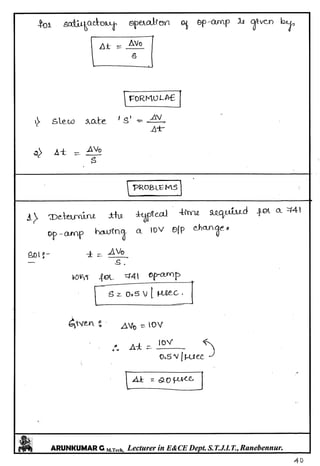 for satisfactory operation of op-amp is given by,
Δt = ΔVo / S
FORMULAE
1) Slew rate 'S' = ΔV / Δt
2) Δt = ΔVo / S
PROBLEMS
1) Determine the typical time required for a 741
op-amp having a 10V o/p change.
Sol:- t = ΔVo / S.
WKT for 741 op-amp
S = 0.5 V / μsec.
Given : ΔVo = 10V
∴ Δt = 10V / 0.5V/μsec
Δt = 20 μsec.
ARUNKUMAR G M.Tech, Lecturer in E&CE Dept. S.T.J.I.T., Ranebennur.
40